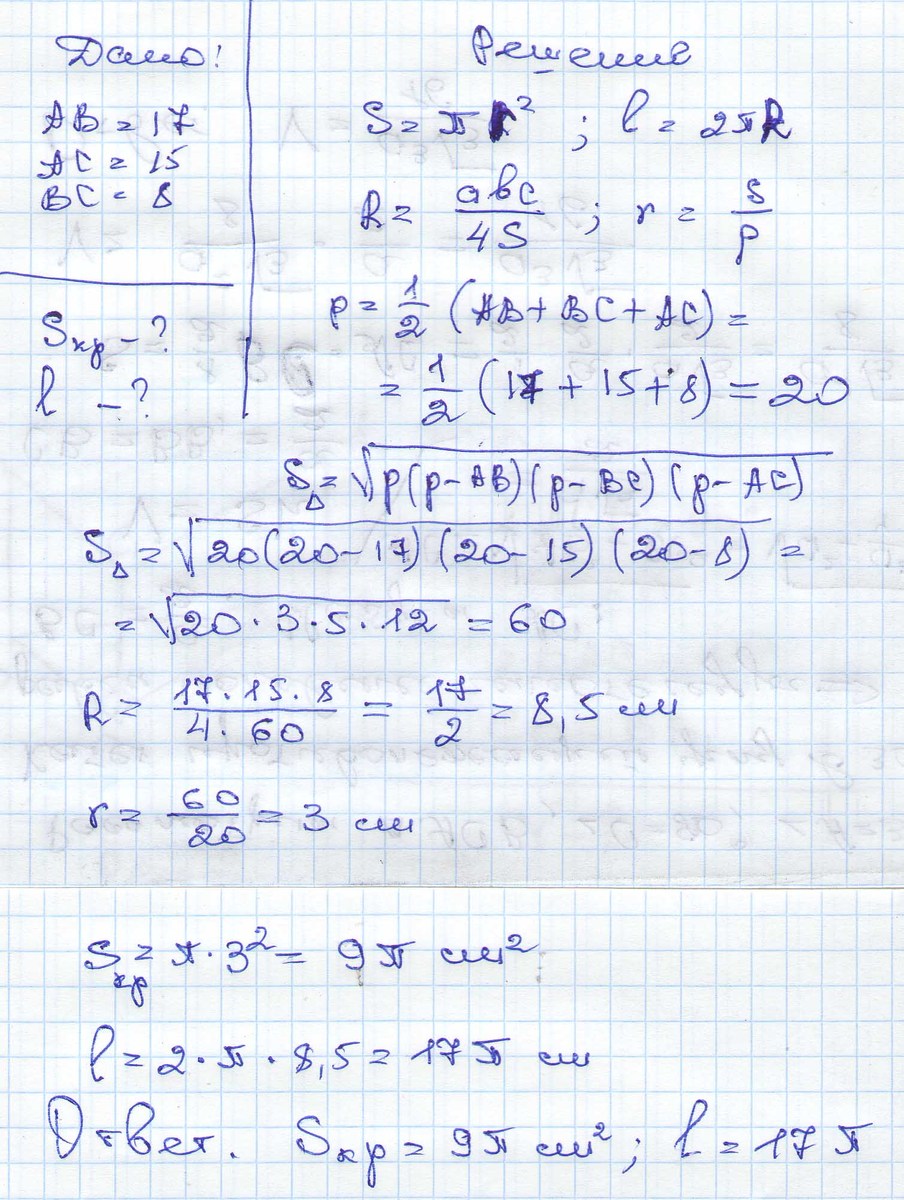 Дано:
AB = 17
AC = 15
BC = 8
Sкр - ?
l - ?
Решение
S = πr² ; l = 2πR
R = abc/4S ; r = S/p
p = 1/2 (AB + BC + AC) =
= 1/2 (17 + 15 + 8) = 20
S△ = √p(p - AB)(p - BC)(p - AC)
S△ = √20(20 - 17)(20 - 15)(20 - 8) =
= √20 · 3 · 5 · 12 = 60
R = 17 · 15 · 8/4 · 60 = 17/2 = 8,5 см
r = 60/20 = 3 см
Sкр = π · 3² = 9π см²
l = 2 · π · 8,5 = 17π см
Ответ. Sкр = 9π см² ; l = 17π